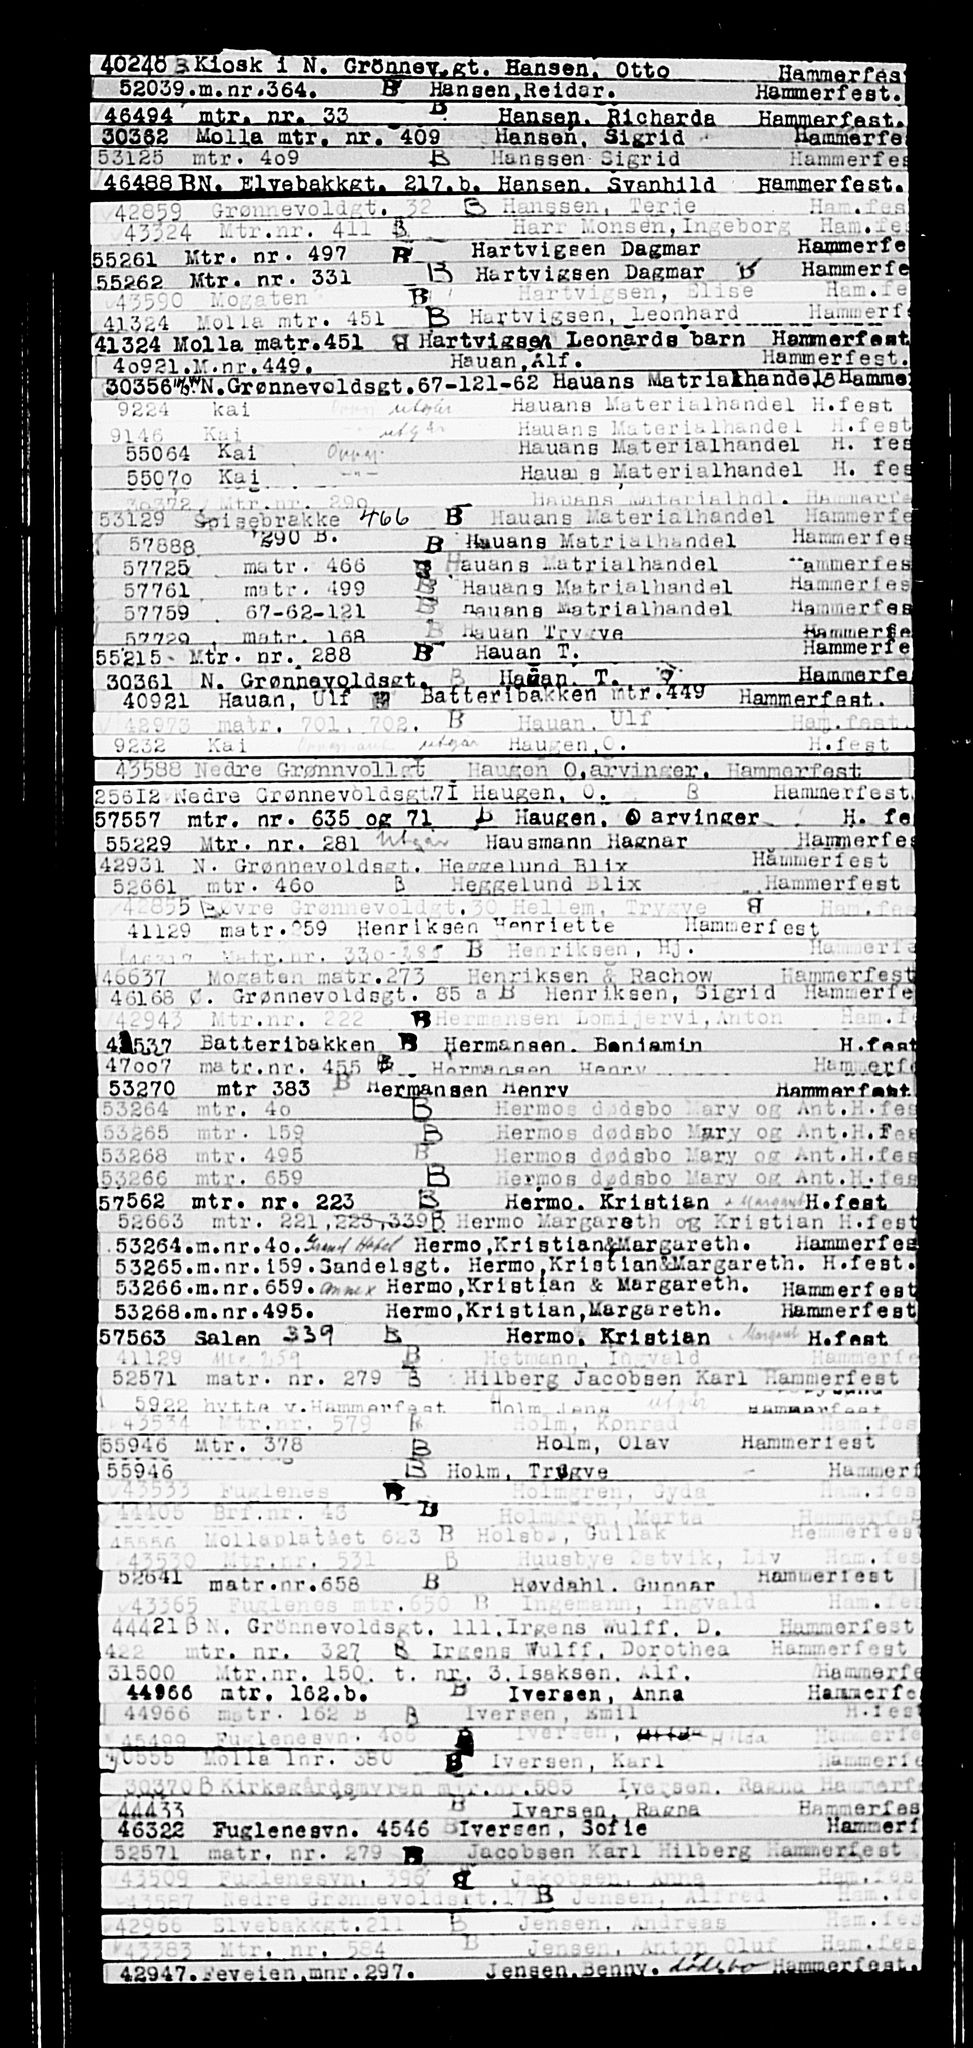 40248 B Kiosk i N. Grönnev.gt. Hansen, Otto Hammerfes
52039.m.nr.364. B Hansen,Reidar. Hammerfest.
46494 mtr. nr. 33 B Hansen, Richarda Hammerfest.
30362 Molla mtr. nr. 409 Hansen, Sigrid Hammerfe
53125 mtr. 409 B Hanssen Sigrid Hammerfes
46488 BN. Elvebakkgt. 217.b. Hansen. Svanhild Hammerfest.
42859 Grønnevoldgt. 32 B Hanssen, Terje Ham.fes
43324 Mtr.nr. 411 B Harr Monsen,Ingeborg Ham.fes
55261 Mtr. nr. 497 B Hartvigsen Dagmar Hammerfe
55262 Mtr. nr. 331 B Hartvigsen Dagmar B Hammerfe
43590 Mogaten B Hartvigsen, Elise Ham.fe
41324 Molla mtr. 451 B Hartvigsen, Leonhard Hammerf
41324 Molla matr.451 B Hartvigsen Leonards barn Hammerfest
40921.M.nr.449. Hauan,Alf. Hammerfest.
30356 N.Grønnevoldsgt.67-121-62 Hauans Matrialhandel B Hamme
9224 kai utgår Hauans Materialhandel H.fest
9146 Kai utgår Hauans Materialhandel H.fest
55064 Kai Hauans Materialhandel H. fes
55070 Kai -"- Haua s Materialhandel H. fes
30372 Mtr.nr. 290 Hauans Materialhdl. Hammerfe
53129 Spisebrakke 466 B Hauans Materialhandel Hammerfe
57888 290 B. B Hauans Matrialhandel Hammerfes
57725 matr. 466 B Hauans Matrialhandel ammerfes
57761 matr. 499 B Hauans Matrialhandel Hammerfes
57759 67-62-121 B Hauans Matrialhandel Hammerfes
57729 matr. 168 B Hauan Trygve Hammerfe
55215 Mtr. nr. 288 B Hauan T. Hammerfe
30361 N. Grønnevoldsgt. B Hauan. T. Hammerfe
40921 Hauan, Ulf Batteribakken mtr.449 Hammerfest.
42973 matr. 701, 702. B Hauan, Ulf Ham.fest.
9232 Kai utgår Haugen,O. H.fest
43588 Nedre Grønnvollgt Haugen O,arvinger. Hammerfest
25612 Nedre Grønnevoldsgt.71 Haugen, O. B Hammerfest.
57557 mtr. nr. 635 og 71 B Haugen, O arvinger H. fe
55229 Mtr. nr. 281 utgår Hausmann Hagnar Hammerfes
42931 N. Grønnevoldsgt. Heggelund Blix Hammerfest
52661 mtr. 460 B Heggelund Blix Hammerfest
42855 Øvre Grønnevoldgt.30 Hellem, Trygve B Ham.fes
41129 matr.259 Henriksen Henriette Hammerfest
Matr.nr. 330-285 B Henriksen, Hj. Hammerfe
46637 Mogaten matr.273 Henriksen & Rachow Hammerfest
46168 Ø. Grønnevoldsgt. 85 a B Henriksen, Sigrid Hammerfe
42943 Mtr.nr. 222 B Hermansen Lomijervi,Anton Ham.f
537 Batteribakken B Hermansen. Benjamin H.fest
47007 matr.nr. 455 B Hermansen Henry Hammerf
53270 mtr 383 B Hermansen Henry Hammerfest
53264 mtr. 40 B Hermos dødsbo Mary og Ant.H.fes
53265 mtr. 159 B Hermos dødsbo Mary og Ant.H.Fes
53268 mtr. 495 B Hermos dødsbo Mary og Ant.H.fes
53266 mtr. 659 B Hermos dødsbo Mary og Ant.H.fes
57562 mtr. nr. 223 B Hermo. Kristian + Margaret H.fest
52663 mtr. 221,223,339 B Hermo Margareth og Kristian H.fest
53264.m.nr.40. Grand Hotel Hermo,Kristian&Margareth. Hammerfes
53265.m.nr.159.Sandelsgt. Hermo,Kristian&Margareth. H.fest.
53266.m.nr.659. annex Hermo,Kristian & Margareth. Hammerfest
53268.m.nr.495. Hermo,Kristian,Margareth. Hammerfest
57563 Salen 339 B Hermo. Kristian Margaret H.fest
41129 Mtr. 259 B Hetmann, Ingvald Hammerfe
52571 matr. nr. 279 B Hilberg Jacobsen Karl Hammerfest
5922 hytte v.Hammerfest Holm Jens utgår Hammerfest
43534 Mtr.nr. 579 B Holm, Konrad Ham.fes
55946 Mtr. 378 B Holm, Olav Hammerfest
55946 B Holm, Trygve Hammerf
43533 Fuglenes B Holmgren, Gyda Ham.fes
44405 Brf.nr. 48 B Holmgren, Marta Hammerfes
Mollaplatået 623 B Holsbø, Gullak Hammerfest
43530 Mtr.nr. 531 B Huusbye Østvik, Liv Ham.fes
52641 matr.nr.658 B Høvdahl. Gunnar Hammerfest
43365 Fuglenes mtr.650 B Ingemann, Ingvald Ham.fe
44421 B N. Grönnevoldsgt. 111.Irgens Wulff. D. Hammerfest
422 mtr. nr. 327 B Irgens Wulff. Dorothea Hammerfest
31500 Mtr.nr. 150. t. nr. 3.Isaksen. Alf. Hammerfe
44966 mtr. 162.b. B Iversen, Anna Hammerfe
44966 matr. 162 B B Iversen, Emil H.fest
45499 Fuglenesvn. 408 B Iversen, Hilda Hammerfe
0555 Molla lnr. 380 B Iversen, Karl Hammerfe
30370 B Kirkegårdsmyren mtr.nr.585 Iversen. Ragna Hammerf
44433 B Iversen, Ragna Hammerfes
46322 Fuglenesvn. 4546 B Iversen, Sofie Hammerf
52571 matr. nr. 279 B Jacobsen Karl Hilberg Hammerfest
43509 Fuglenesvn. 396 B Jakobsen, Anna Ham.fes
43587 Nedre Grønnevoldsgt.17 B Jensen, Alfred Ham.fe
42966 Elvebakkgt.211 B Jensen, Andreas Ham.fes
43383 Mtr. nr. 584 B Jensen, Anton Oluf Ham.fes
42947.Feveien,mnr.297. Jensen.Benny. dødsbo Hammerfest.